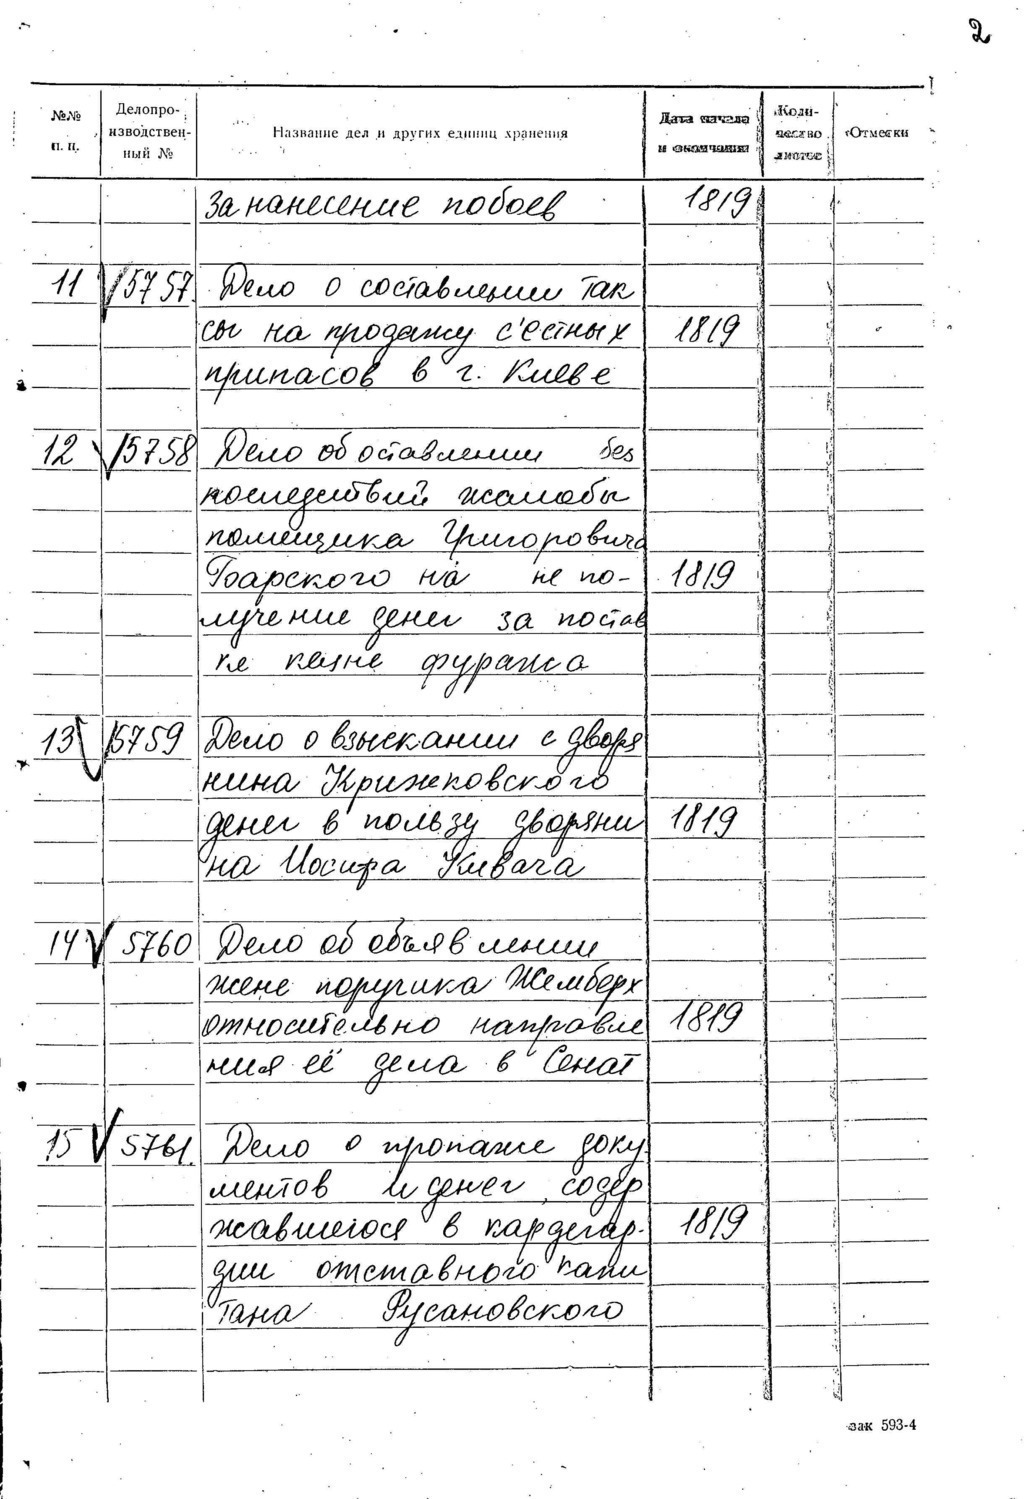 2
№№ п. п.
Делопро-изводствен-ный №
Название дел и других единиц хранения
Дата начала и окончания
Количество листов
Отметки
За нанесение побоев 1819
11 5757. Дело о составлении так
сы на продажу с'естных 1819
припасов в г. Киеве
12 5758 Дело об оставлении без
последствий жалобы
помещика Григоровича
на не по- 1819
лучение денег за постав
ке казне фуража
13 5759 Дело о взыскании с дворя
нина Крижковского
денег в пользу дворяни 1819
на Иосифа Кивача
14 5760 Дело об объявлении
жене поручика Жемберх
относительно направле 1819
ния её дела в Сенат
15 5761. Дело о пропаже доку
ментов и денег, содер
жавшегося в кардегар- 1819
дии отставного капи
тана Русановского
зак 593-4